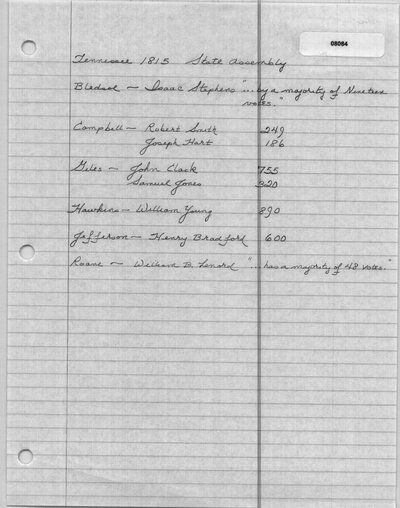 08084
Tennessee 1815 State Assembly
Bledsol - Isaac Stephens "...by a majority of Nineteen
votes."
Campbell - Robert Smith 249
Joseph Hart 186
Giles - John Clack 755
Samuel Jones 320
Hawkins - William Young 890
Jefferson - Henry Bradford 600
Roane - William B. Lenord "...has a majority of 48 votes."